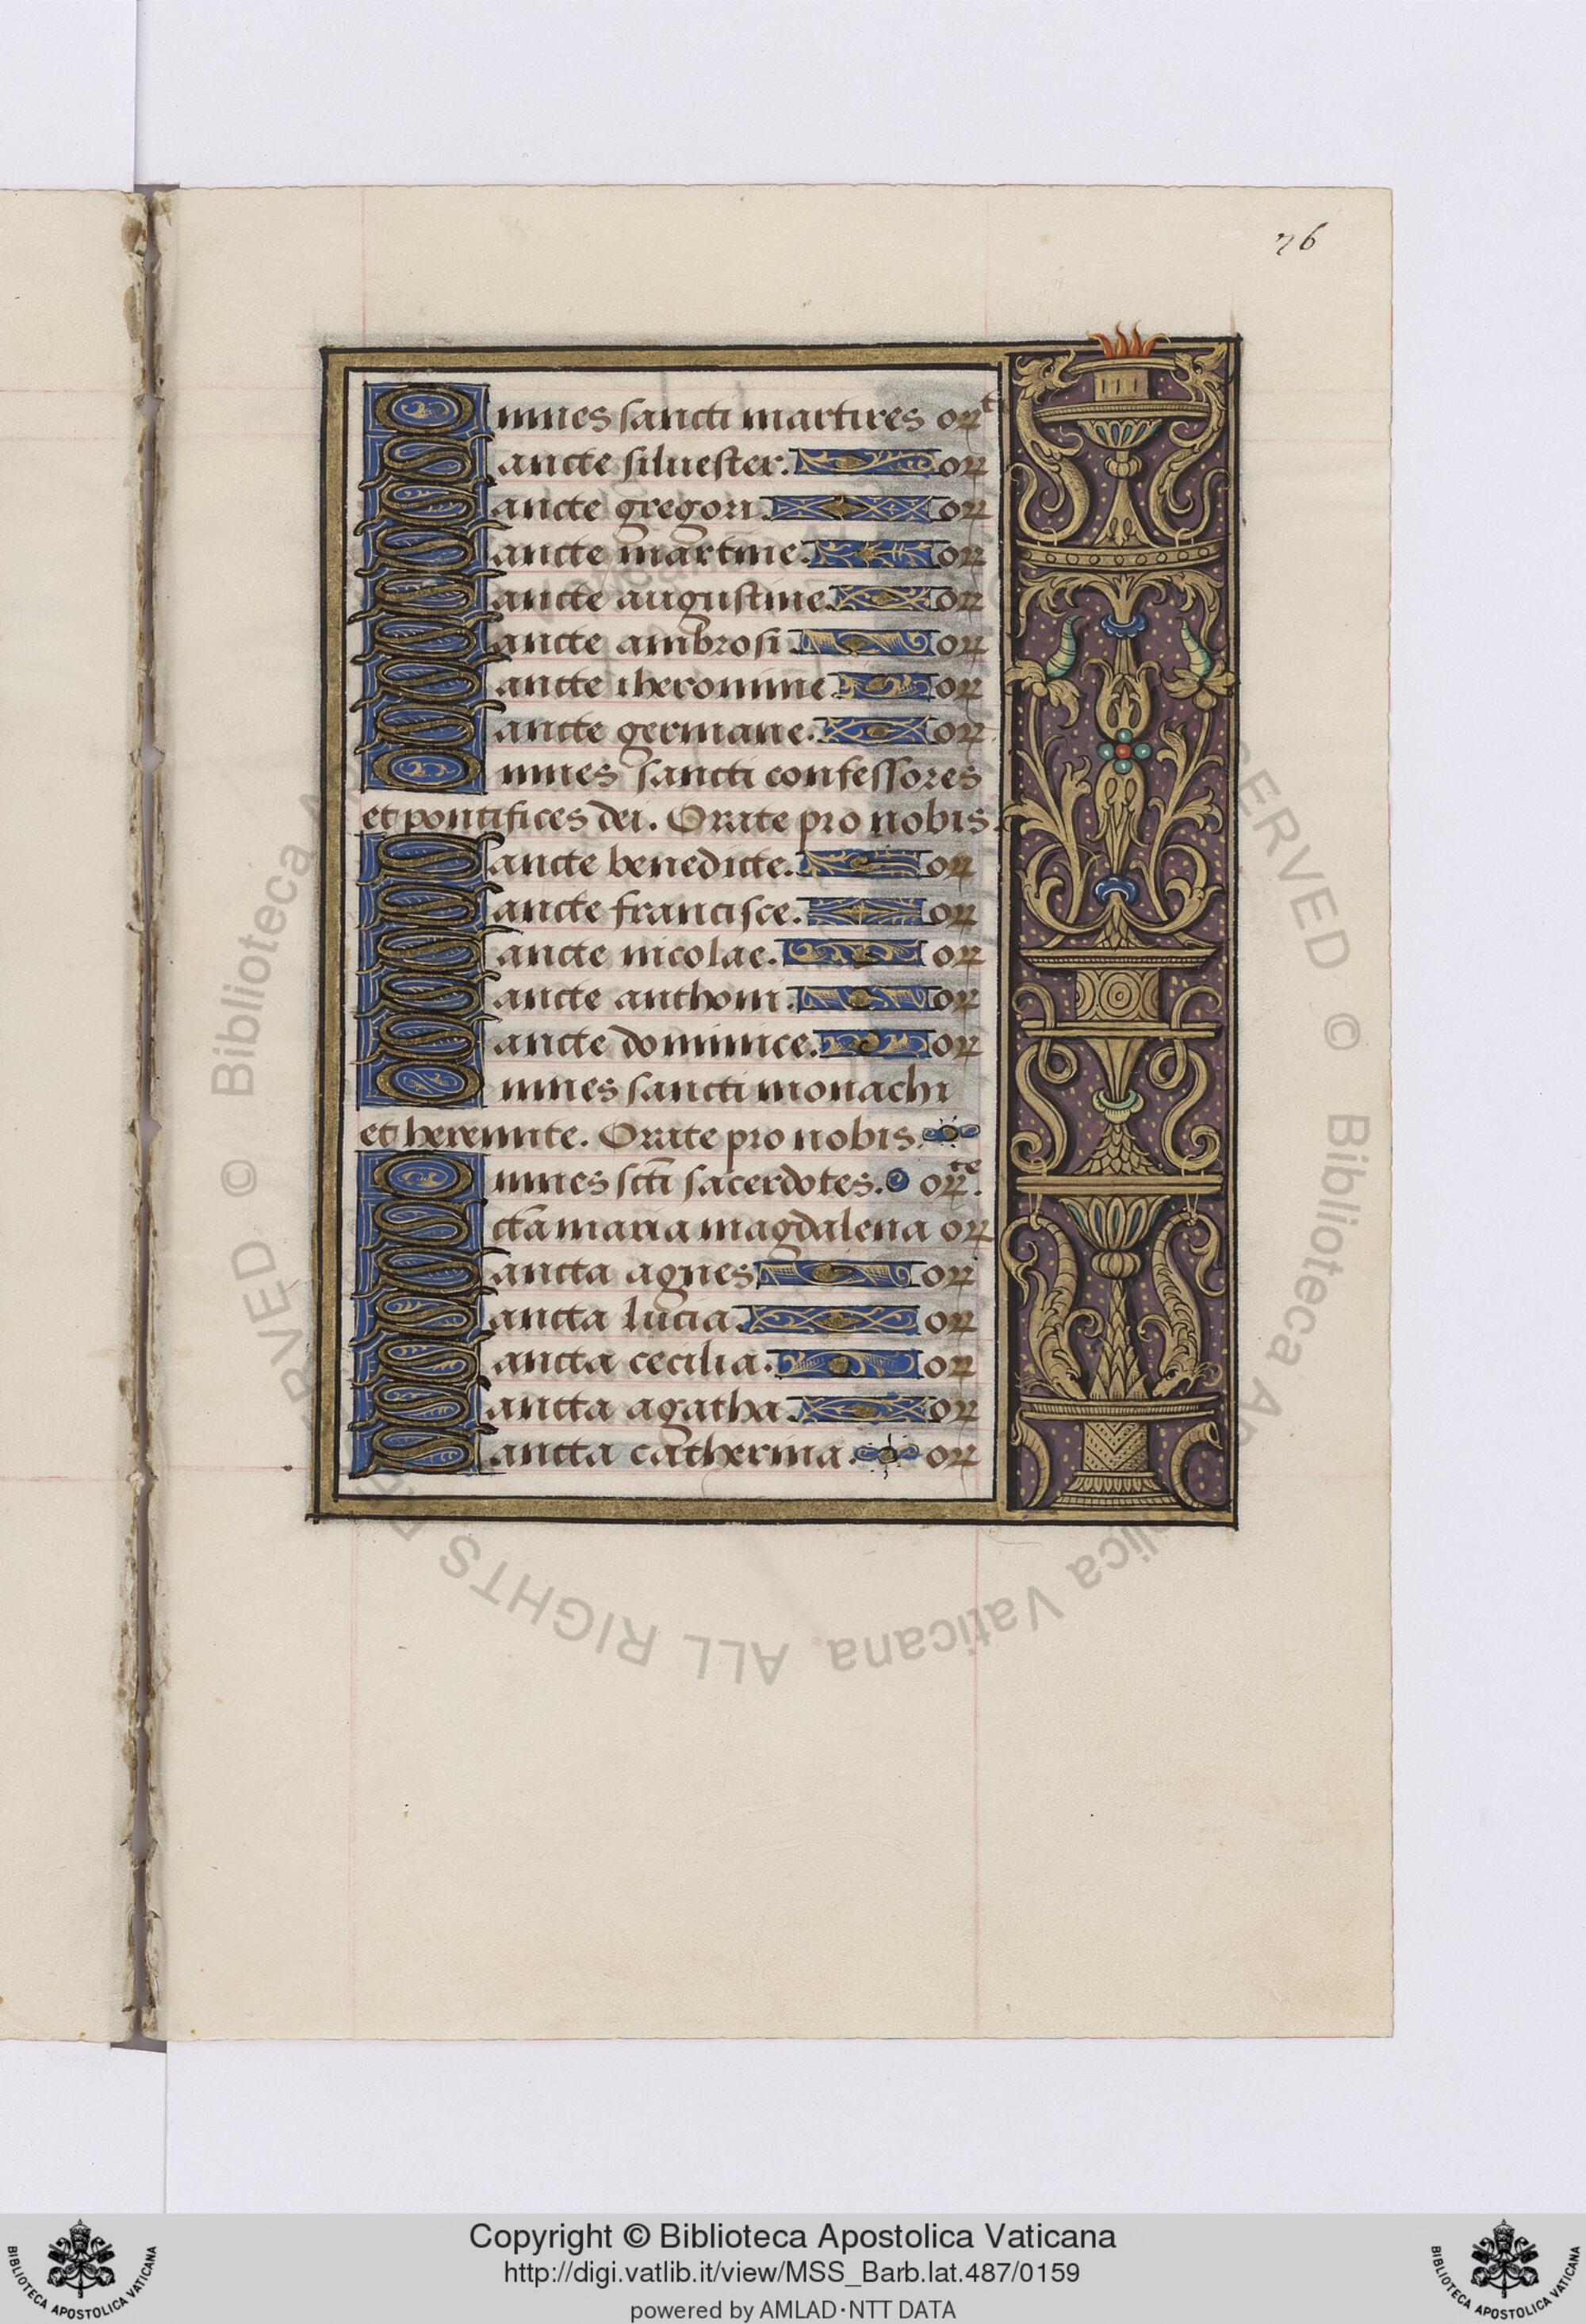 76
Omnes sancti martires orꝛt
Sancte siluester. orꝛ
Sancte gregori. orꝛ
Sancte martine. orꝛ
Sancte augustine. orꝛ
Sancte ambrosi. orꝛ
Sancte iheronime. orꝛ
Sancte germane. orꝛ
Omnes sancti confessores
et pontifices dei. Orate pro nobis.
Sancte benedicte. orꝛ
Sancte francisce. orꝛ
Sancte nicolae. orꝛ
Sancte anthoni. orꝛ
Sancte dominice. orꝛ
Omnes sancti monachi
et heremite. Orate pro nobis.
Omnes scti sacerdotes. orꝛte.
Scta maria magdalena orꝛ
Sancta agnes orꝛ
Sancta lucia. orꝛ
Sancta cecilia. orꝛ
Sancta agatha. orꝛ
Sancta catherina. orꝛ
© Biblioteca Apostolica Vaticana ALL RIGHTS RESERVED
Copyright © Biblioteca Apostolica Vaticana
http://digi.vatlib.it/view/MSS_Barb.lat.487/0159
powered by AMLAD·NTT DATA
BIBLIOTECA APOSTOLICA VATICANA
BIBLIOTECA APOSTOLICA VATICANA